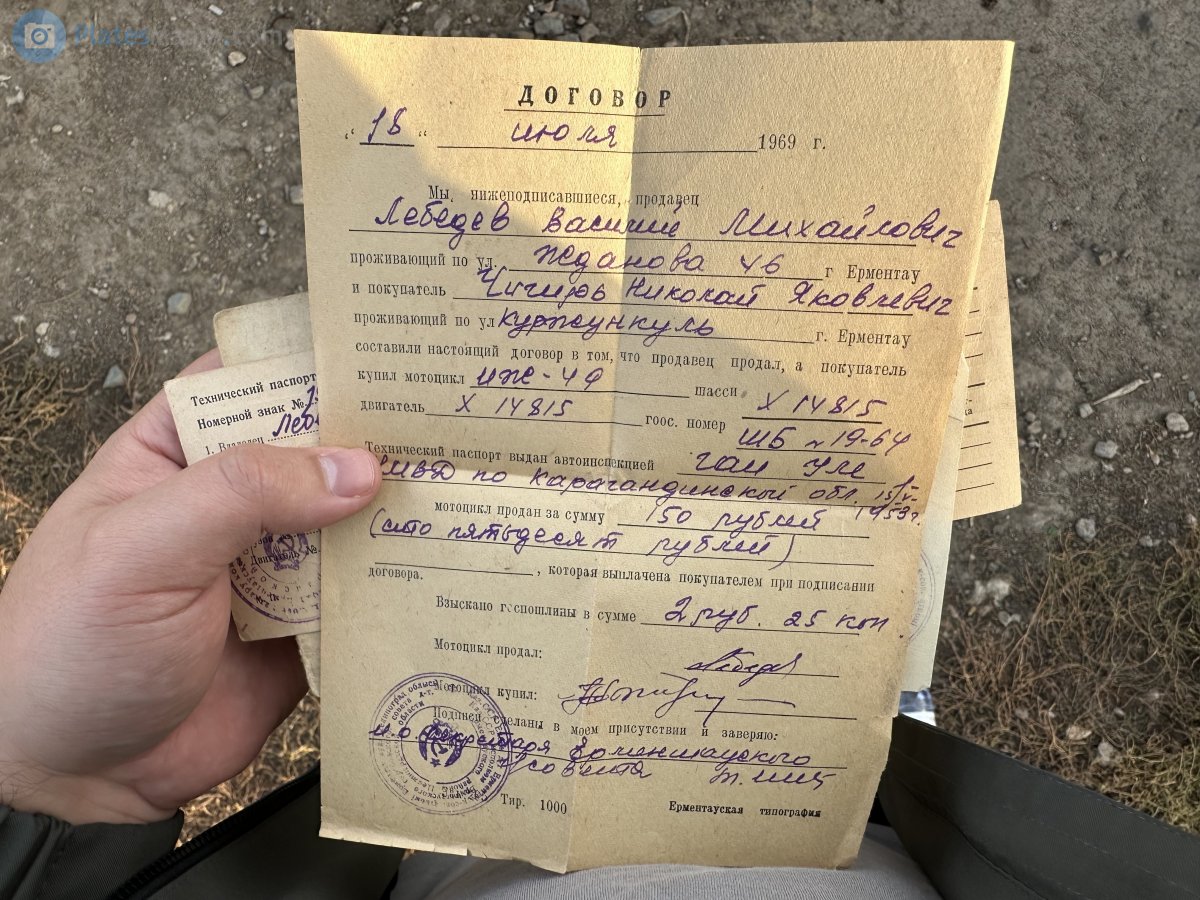 ДОГОВОР
„18“ июля 1969 г.
Мы, нижеподписавшиеся, продавец
Лебедев Василий Михайлович
проживающий по ул. Жданова 46 г Ерментау
и покупатель Чигирь Николай Яковлевич
проживающий по ул Куржункуль г. Ерментау
составили настоящий договор в том, что продавец продал, а покупатель
купил мотоцикл ИЖ-49 шасси X 14815
двигатель X 14815 гоос. номер ШБ №19-64
Технический паспорт выдан автоинспекцией ГАИ УМ
МВД по Карагандинской обл.
мотоцикл продан за сумму 150 рублей
(сто пятьдесят рублей)
, которая выплачена покупателем при подписании
договора.
Взыскано госпошлины в сумме 2 руб. 25 коп.
Мотоцикл продал:
Мотоцикл купил:
Подписи сделаны в моем присутствии и заверяю:
И.о секретаря
совета
Тир. 1000 Ерментауская типография
Технический паспорт
Номерной знак №
1. Владелец Лебе
Двигатель №